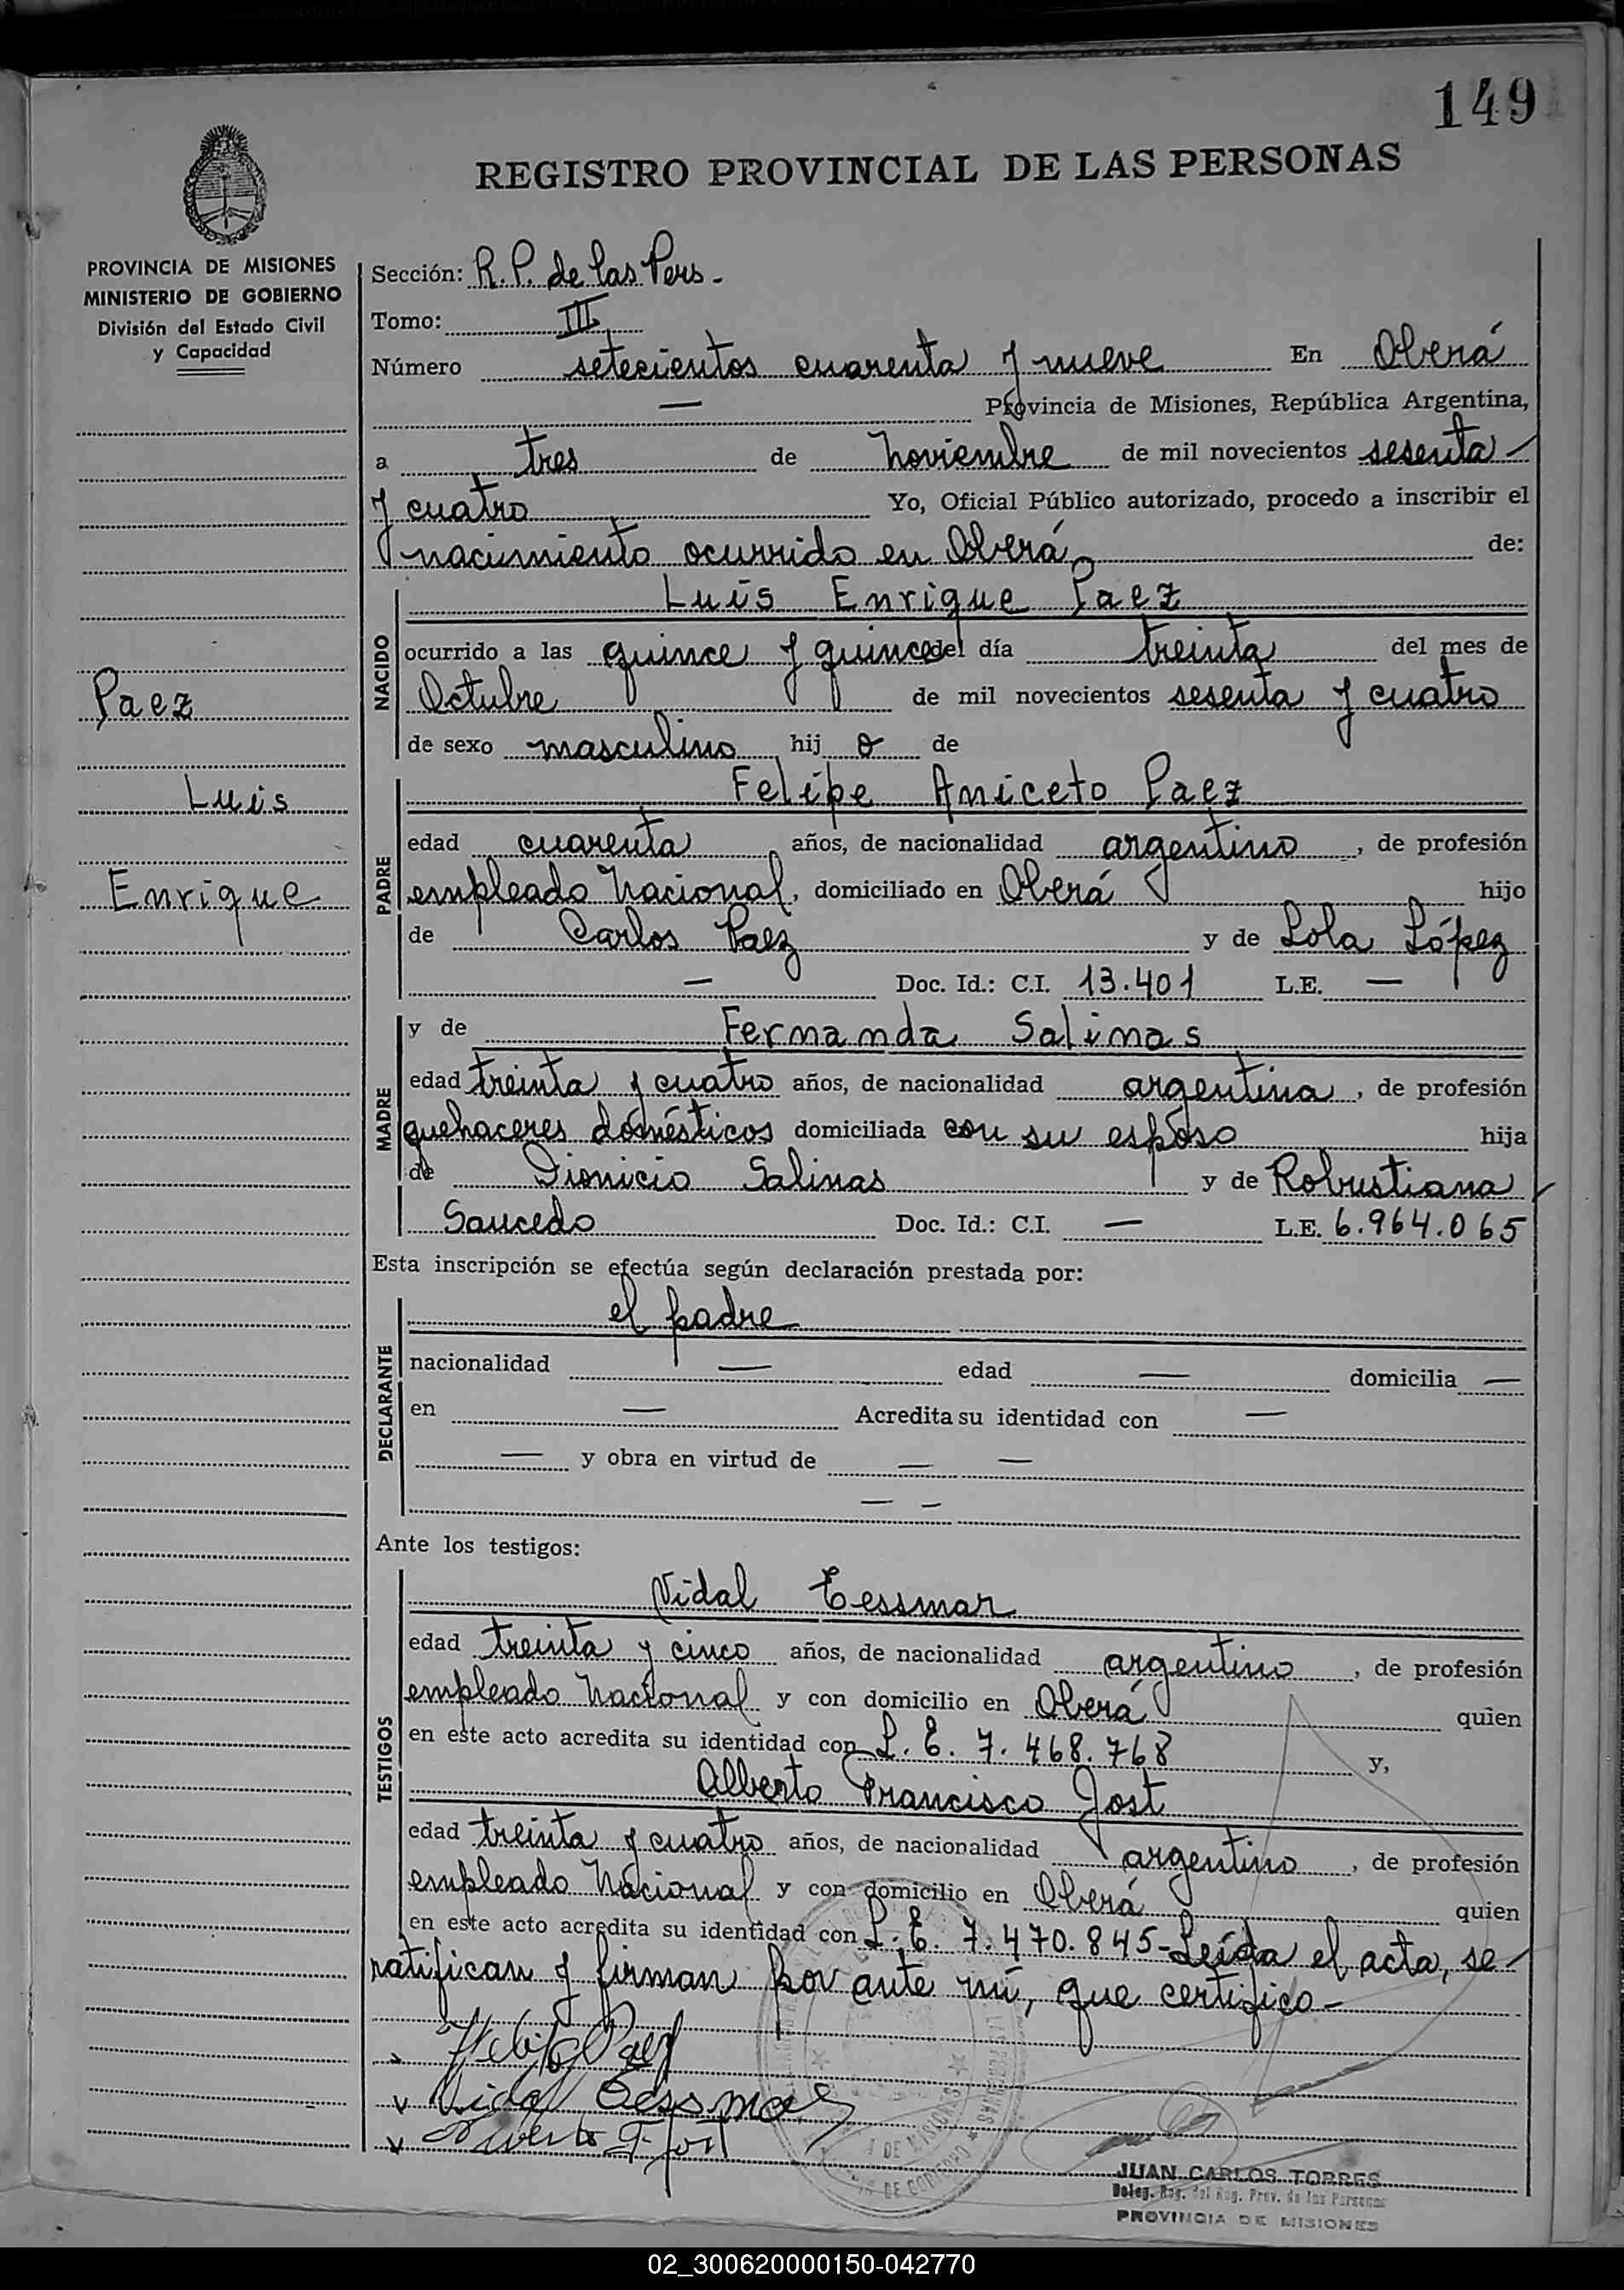 149
REGISTRO PROVINCIAL DE LAS PERSONAS
PROVINCIA DE MISIONES
MINISTERIO DE GOBIERNO
División del Estado Civil
y Capacidad
Sección: R. P. de las Pers.-
Tomo: III
Número setecientos cuarenta y nueve En Oberá
— Provincia de Misiones, República Argentina,
a tres de Noviembre de mil novecientos sesenta
y cuatro Yo, Oficial Público autorizado, procedo a inscribir el
nacimiento ocurrido en Oberá de:
NACIDO
Luis Enrique Paez
ocurrido a las quince y quince del día treinta del mes de
Octubre de mil novecientos sesenta y cuatro
de sexo masculino hij o de
Paez
Luis
Enrique
PADRE
Felipe Aniceto Paez
edad cuarenta años, de nacionalidad argentino, de profesión
empleado Nacional, domiciliado en Oberá hijo
de Carlos Paez y de Lola López
— Doc. Id.: C.I. 13.401 L.E. —
MADRE
y de Fernanda Salinas
edad treinta y cuatro años, de nacionalidad argentina, de profesión
quehaceres domésticos domiciliada con su esposo hija
de Dionicio Salinas y de Robustiana
Saucedo Doc. Id.: C.I. — L.E. 6.964.065
Esta inscripción se efectúa según declaración prestada por:
DECLARANTE
el padre
nacionalidad — edad — domicilia —
en — Acredita su identidad con —
— y obra en virtud de — —
— –
Ante los testigos:
TESTIGOS
Vidal Tessmar
edad treinta y cinco años, de nacionalidad argentino, de profesión
empleado Nacional y con domicilio en Oberá quien
en este acto acredita su identidad con L. E. 7.468.768 y,
Alberto Francisco Jost
edad treinta y cuatro años, de nacionalidad argentino, de profesión
empleado Nacional y con domicilio en Oberá quien
en este acto acredita su identidad con L. E. 7.470.845- Leída el acta, se
ratifican y firman por ante mí, que certifico-
Felipe A Paez
Vidal Tessmar
Alberto F. Jost
JUAN CARLOS TORRES
Deleg. Reg. del Reg. Prov. de las Personas
PROVINCIA DE MISIONES
02_300620000150-042770